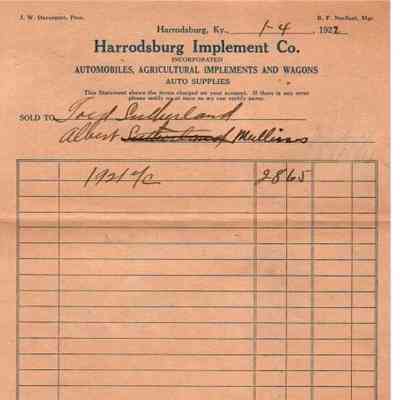 J. W. Davenport, Pres.
B. F. Norfleet, Mgr.
Harrodsburg, Ky., 1-4 1922
Harrodsburg Implement Co.
INCORPORATED
AUTOMOBILES, AGRICULTURAL IMPLEMENTS AND WAGONS
AUTO SUPPLIES
This Statement shows the items charged on your account. If there is any error
please notify us at once so we can rectify same.
SOLD TO Ford Sutherland
Albert Sutherland Mullins
1921 a/c 28 65